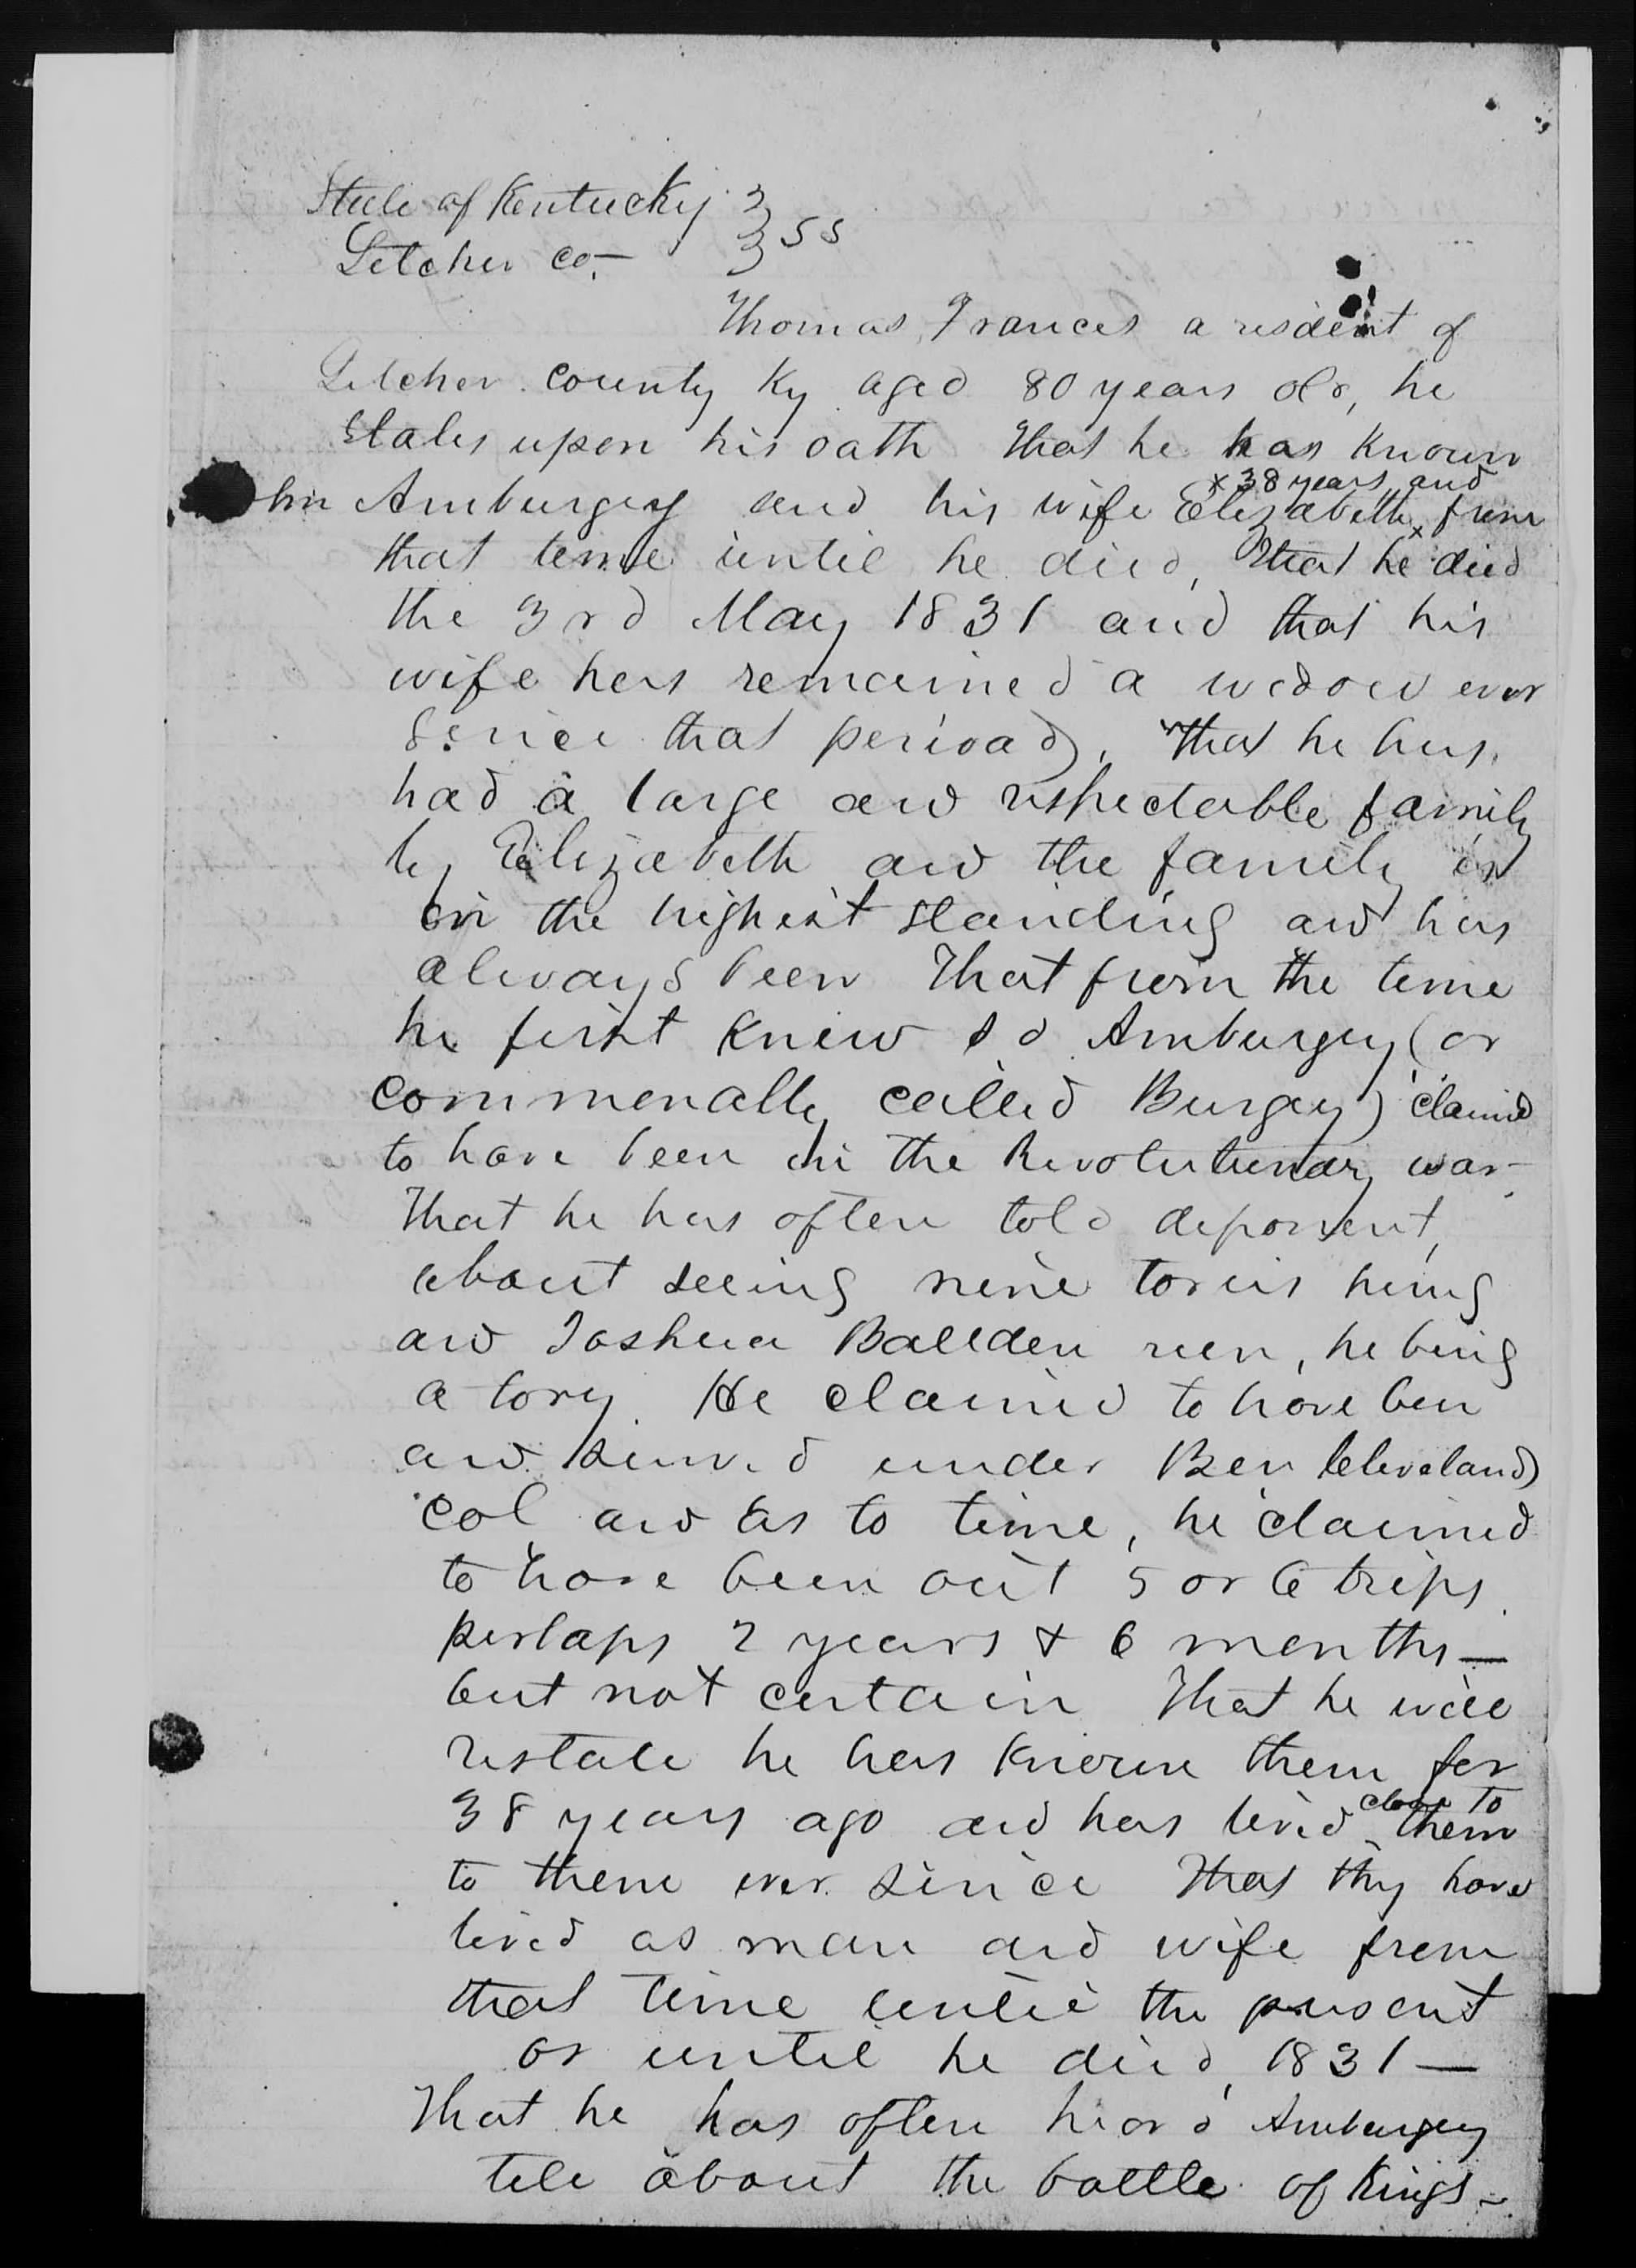 State of Kentucky } SS
Letcher Co. –
Thomas Frances a resident of
Letcher County Ky aged 80 years old, he
States upon his oath that he has known
hn Amburgey and his wife Elizabeth x from
x 38 years and
that time until he died, that he died
the 3rd May 1831 and that his
wife has remained a widow ever
Since that perioad, that he has
had a large and respectable family
by Elizabeth and the family is
in the highest standing and has
always been That from the time
he first knew sd Amburgey (or
commenally called Burgey) claimed
to have been in the Revolutionary war –
That he has often told deponent,
about seeing nine tories hung
and Joshua Ballden run, he being
a tory. He claimed to have ben
and served under Ben Cleveland
Col and as to time, he claimed
to have been out 5 or 6 trips
perhaps 2 years & 6 months —
but not certain That he will
restate he has known them for
38 years ago and has lived close to them
to them ever since That they have
lived as man and wife from
that time until the present
or until he died, 1831 —
That he has often heard Amburgey
tell about the battle of Kings –